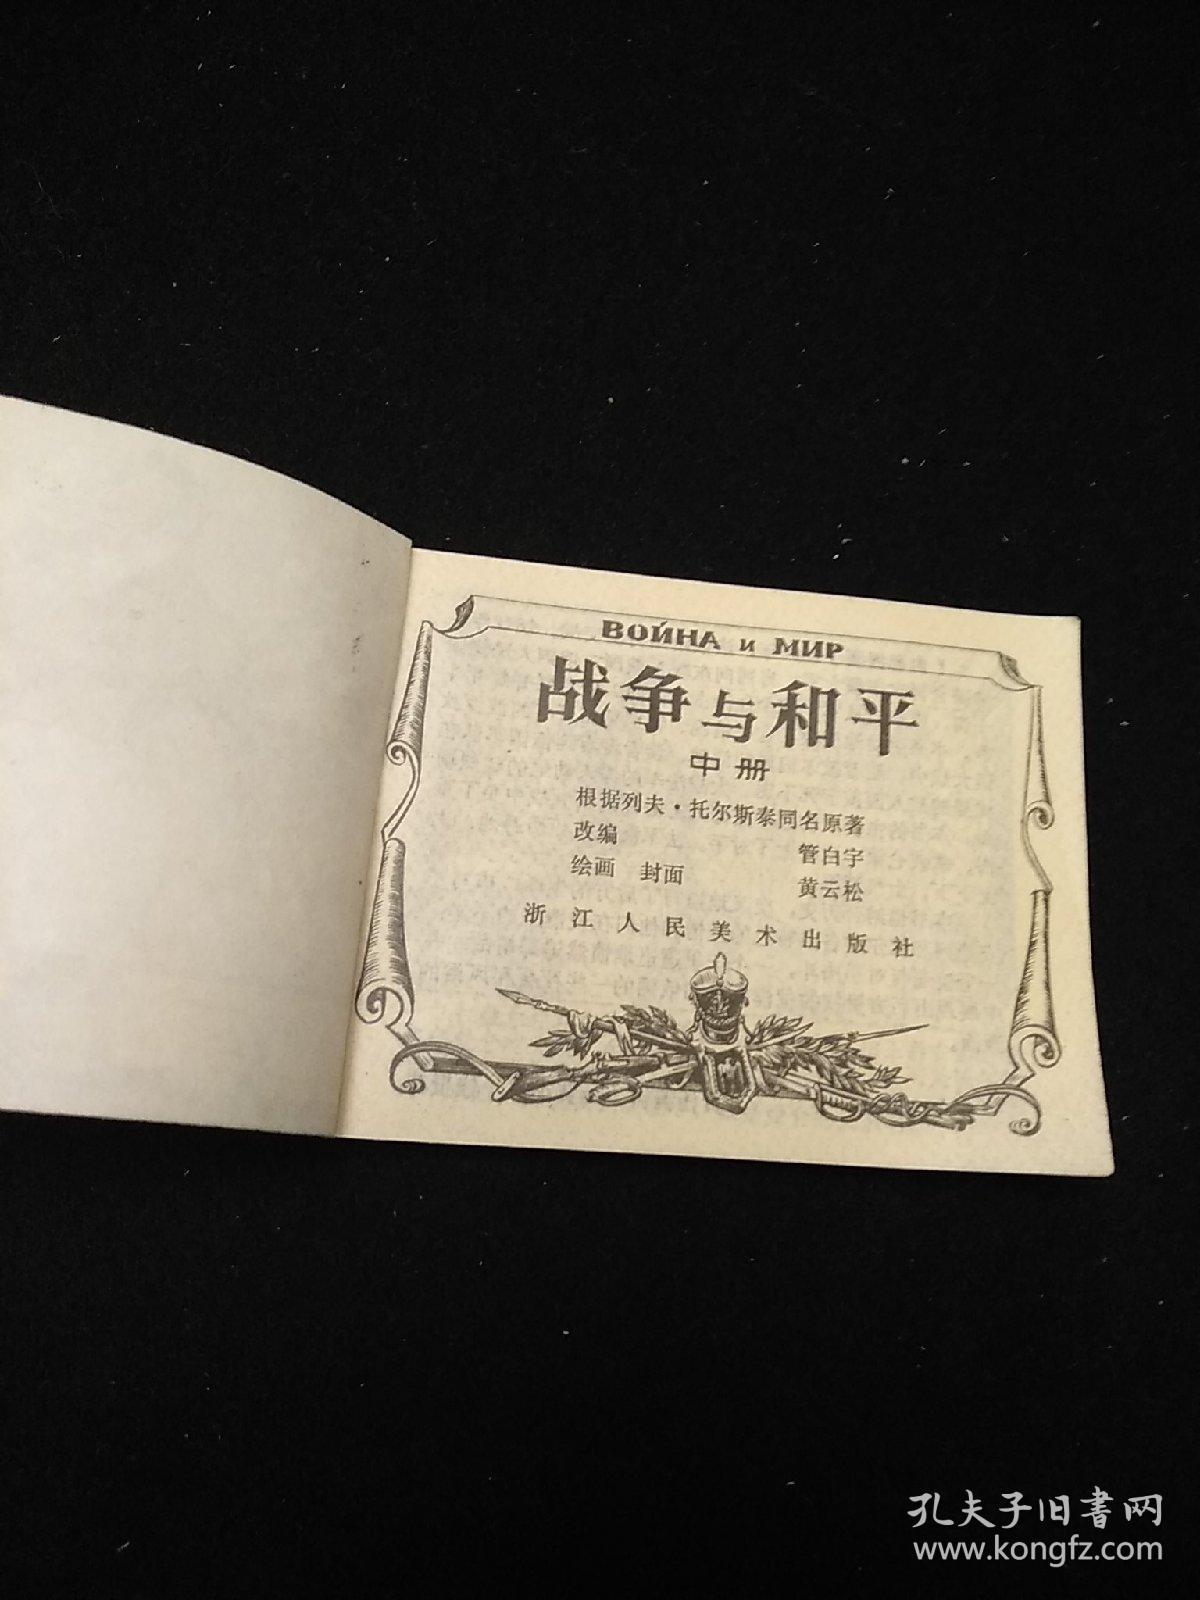 ВОЙНА и МИР
战争与和平
中册
根据列夫·托尔斯泰同名原著
改编 管白宇
绘画 封面 黄云松
浙江人民美术出版社
孔夫子旧書网
www.kongfz.com